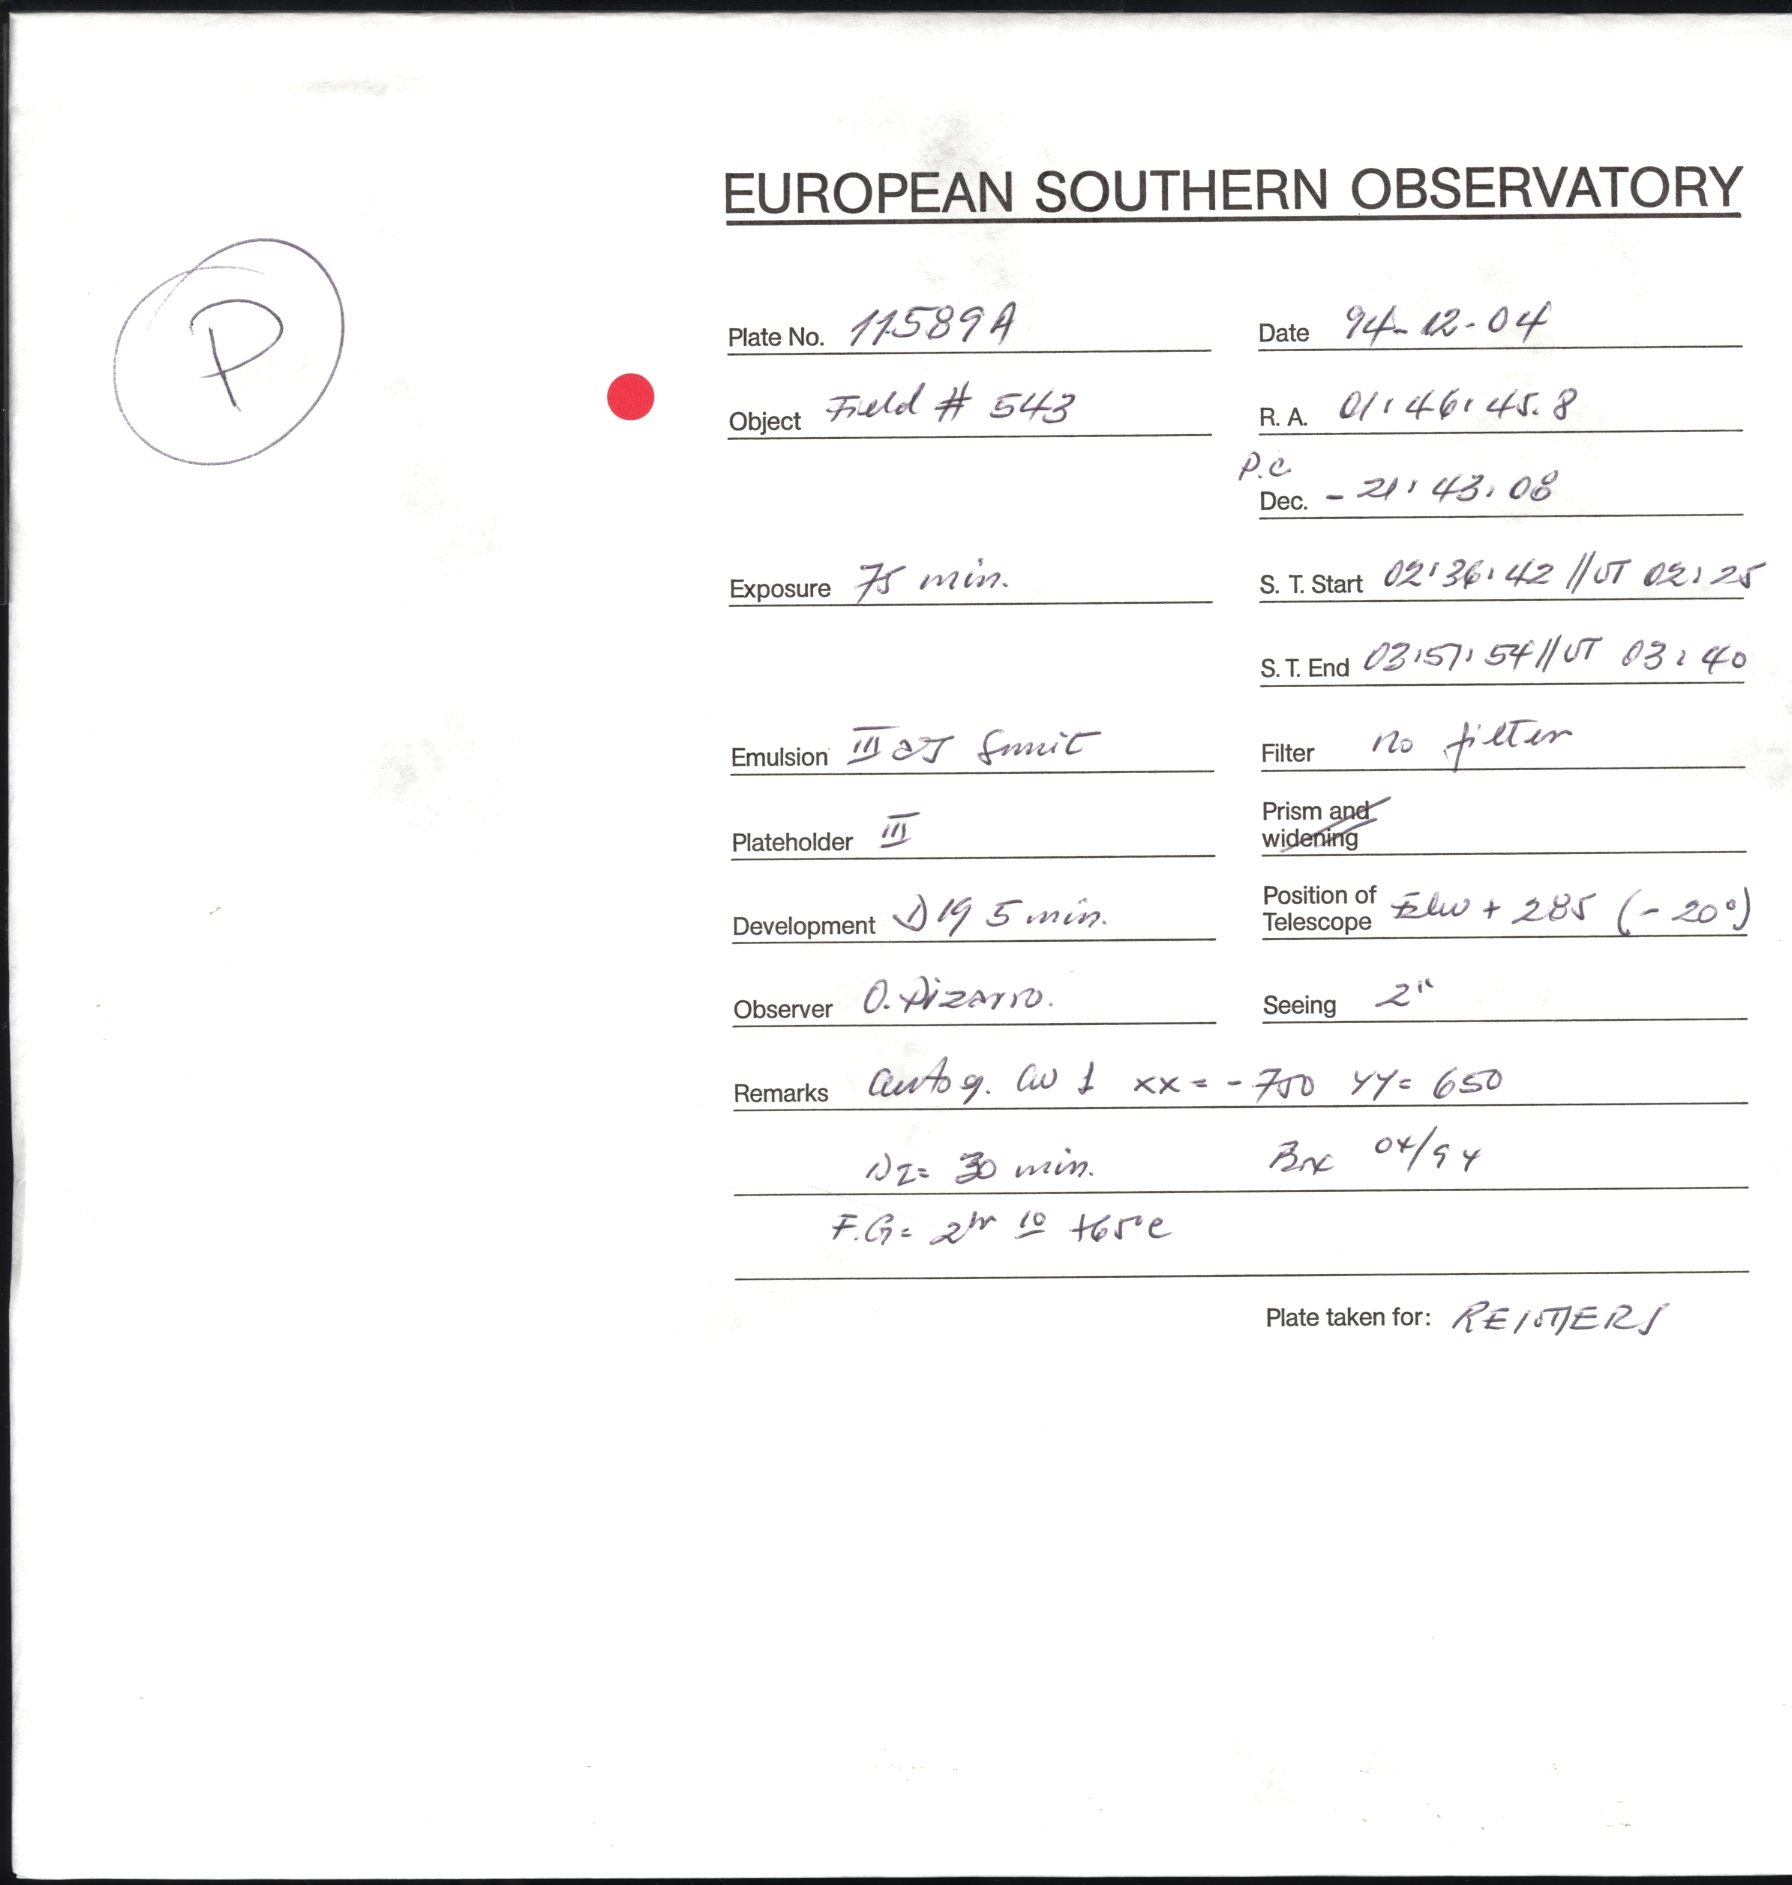 EUROPEAN SOUTHERN OBSERVATORY
P
Plate No. 11589A Date 94-12-04
Object Field # 543 R. A. 01:46:45.8
P.C
Dec. - 21:43:08
Exposure 75 min. S. T. Start 02:36:42 // UT 02:25
S. T. End 03:51:54 // UT 03:40
Emulsion III aJ Filter no filter
Plateholder III Prism and
widening
Development D19 5 min. Position of
Telescope + 285 (-20°)
Observer O. Pizarro. Seeing 2"
Remarks autog. CW 1 xx = - 750 YY = 650
= 30 min. 04/94
F.G = 2hr 10 +65°C
Plate taken for: REIMERS